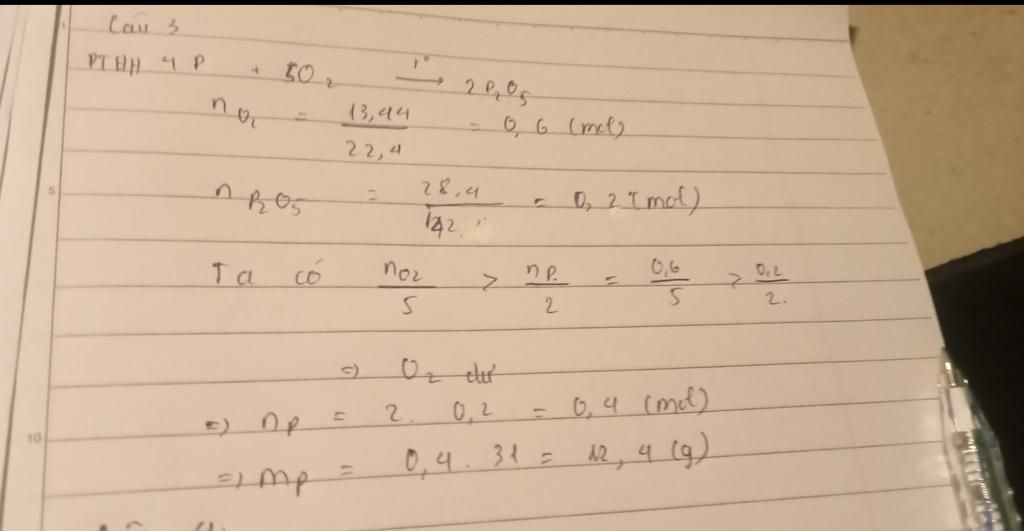 Câu 3
PTHH 4P + 5O₂ t°→ 2P₂O₅
nO₂ = 13,44/22,4 = 0,6 (mol)
nP₂O₅ = 28,4/142 = 0,2 (mol)
Ta có nO₂/5 > nP/2 = 0,6/5 > 0,2/2.
⇒ O₂ dư
⇒ nP = 2. 0,2 = 0,4 (mol)
⇒ mP = 0,4 . 31 = 12,4 (g)